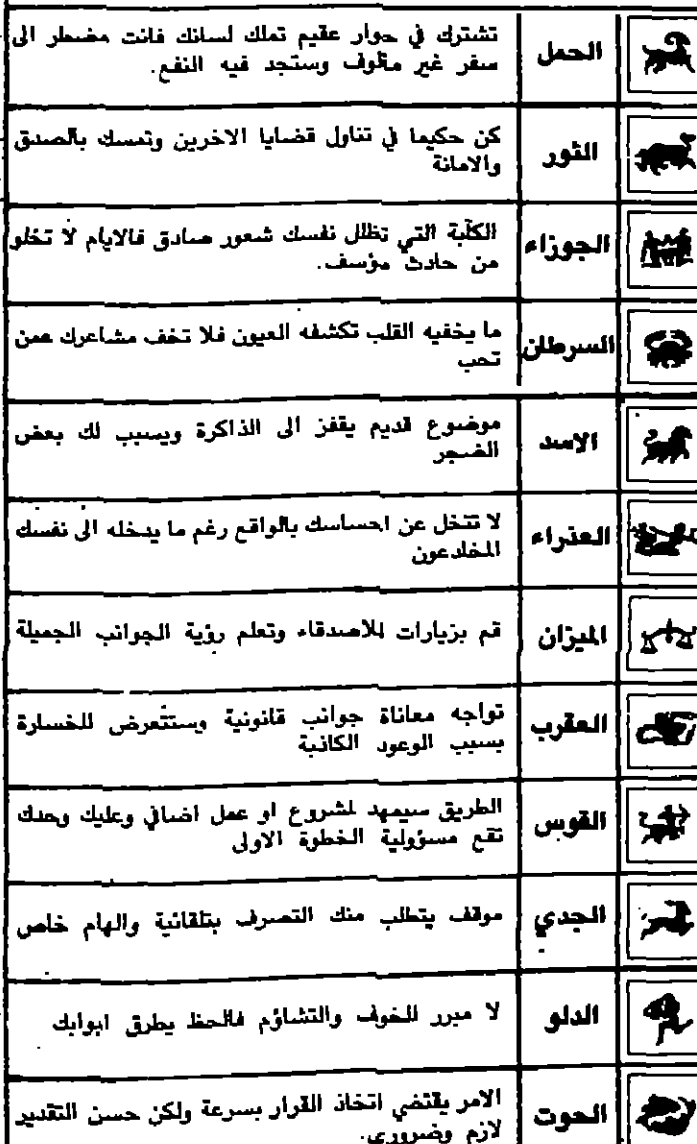 الحمل
تشترك في حوار عقيم تملك لسانك فانت مضطر الى
سفر غير مألوف وستجد فيه النفع.
الثور
كن حكيما في تناول قضايا الاخرين وتمسك بالصدق
والامانة
الجوزاء
الكآبة التي تظلل نفسك شعور صادق فالايام لا تخلو
من حادث مؤسف.
السرطان
ما يخفيه القلب تكشفه العيون فلا تخف مشاعرك عمن
تحب
الاسد
موضوع قديم يقفز الى الذاكرة ويسبب لك بعض
الضجر
العذراء
لا تتخل عن احساسك بالواقع رغم ما يدخله الى نفسك
المخادعون
الميزان
قم بزيارات للاصدقاء وتعلم رؤية الجوانب الجميلة
العقرب
تواجه معاناة جوانب قانونية وستتعرض للخسارة
بسبب الوعود الكاذبة
القوس
الطريق سيمهد لمشروع او عمل اضافي وعليك وحدك
تقع مسؤولية الخطوة الاولى
الجدي
موقف يتطلب منك التصرف بتلقائية والهام خاص
الدلو
لا مبرر للخوف والتشاؤم فالحظ يطرق ابوابك
الحوت
الامر يقتضي اتخاذ القرار بسرعة ولكن حسن التقدير
لازم وضروري.